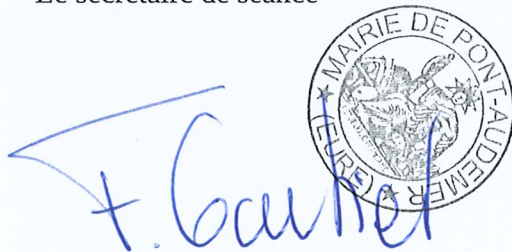 Le secrétaire de séance
★ MAIRIE DE PONT-AUDEMER ★ (EURE)
F. Gautier